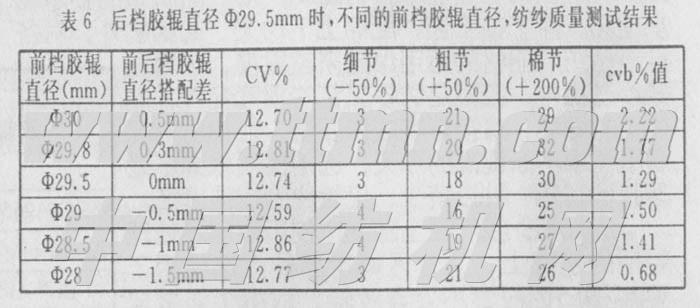 表 6 后档胶辊直径 Φ29.5mm 时,不同的前档胶辊直径,纺纱质量测试结果
前档胶辊直径(mm) 前后档胶辊直径搭配差 CV% 细节(-50%) 粗节(+50%) 棉节(+200%) cvb%值
Φ30 0.5mm 12.70 3 21 29 2.22
Φ29.8 0.3mm 12.81 3 20 32 1.77
Φ29.5 0mm 12.74 3 18 30 1.29
Φ29 -0.5mm 12.59 4 16 25 1.50
Φ28.5 -1mm 12.86 4 19 27 1.41
Φ28 -1.5mm 12.77 3 21 26 0.68
www.ttmn.com
中国纺机网